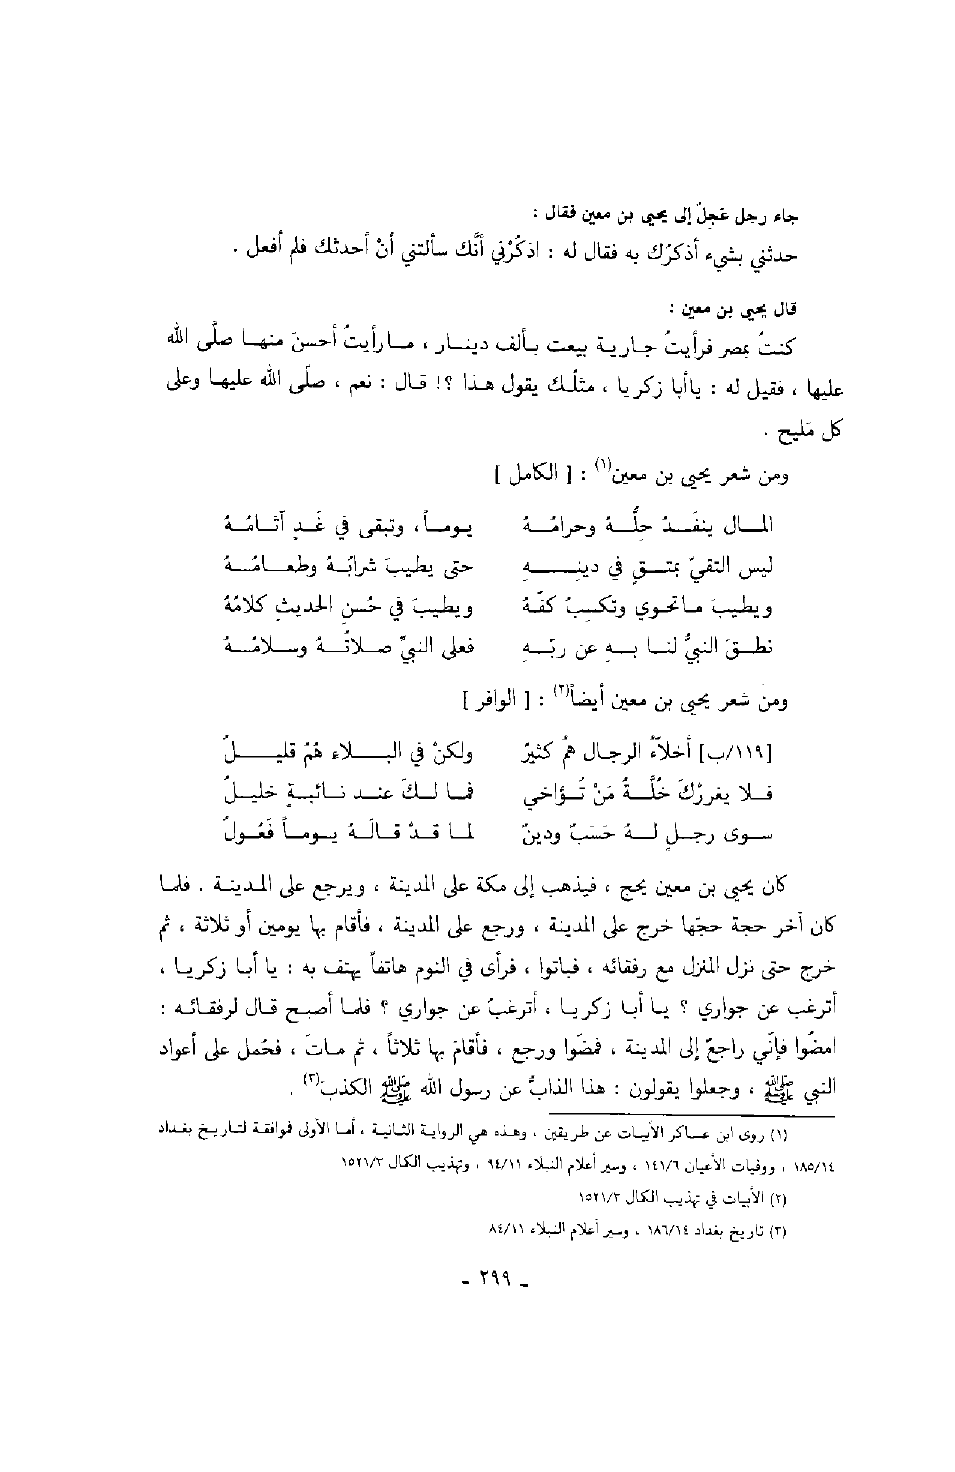 جاء رجل عَجِلٌ إلى يحيى بن معين فقال :
حدثني بشيء أذكرُك به فقال له : اذكُرْني أنَّك سألتني أنْ أحدثك فلم أفعل .
قال يحيى بن معين :
كنتُ بمصر فرأيتُ جارية بيعت بألف دينار ، مارأيتُ أحسنَ منها صلَّى الله
عليها ، فقيل له : ياأبا زكريا ، مثلُك يقول هذا ؟! قال : نعم ، صلَّى الله عليها وعلى
كل مَليح .
ومن شعر يحيى بن معين(١) : [ الكامل ]
المال ينفَدُ حلُّهُ وحرامُهُ يوماً، وتبقى في غَدٍ آثامُهُ
ليس التقيّ بمتقٍ في دينِهِ حتى يطيبَ شرابُهُ وطعامُهُ
ويطيبَ ماتحوي وتكسِبُ كفّهُ ويطيبَ في حُسن الحديثِ كلامُهُ
نطقَ النبيُّ لنا بهِ عن ربّهِ فعلى النبيِّ صلاتُهُ وسلامُهُ
ومن شعر يحيى بن معين أيضاً(٢) : [ الوافر ]
[١١٩/ب] أخلاّءُ الرجال هُمُ كثيرٌ ولكنْ في البلاء هُمُ قليلُ
فلا يغررْكَ خُلَّةُ مَنْ تُؤاخي فما لكَ عند نائبةٍ خليلُ
سوى رجلٍ لهُ حَسَبٌ ودينٌ لما قدْ قالَهُ يوماً فَعُولُ
كان يحيى بن معين يحج ، فيذهب إلى مكة على المدينة ، ويرجع على المدينة . فلما
كان آخر حجة حجّها خرج على المدينة ، ورجع على المدينة ، فأقام بها يومين أو ثلاثة ، ثم
خرج حتى نزل المنزل مع رفقائه ، فباتوا ، فرأى في النوم هاتفاً يهتف به : يا أبا زكريا ،
أترغب عن جواري ؟ يا أبا زكريا ، أترغبُ عن جواري ؟ فلما أصبح قال لرفقائه :
امضُوا فإنّي راجعٌ إلى المدينة ، فمضَوا ورجع ، فأقامَ بها ثلاثاً ، ثم ماتَ ، فحُمل على أعواد
النبي ﷺ ، وجعلوا يقولون : هذا الذابُّ عن رسول الله ﷺ الكذبَ(٣) .
(١) روى ابن عساكر الأبيات عن طريقين ، وهذه هي الرواية الثانية ، أما الأولى فوافقة لتاريخ بغداد
١٨٥/١٤ ، ووفيات الأعيان ١٤١/٦ ، وسير أعلام النبلاء ٩٤/١١ ، وتهذيب الكمال ١٥٢١/٣
(٢) الأبيات في تهذيب الكمال ١٥٢١/٣
(٣) تاريخ بغداد ١٨٦/١٤ ، وسير أعلام النبلاء ٨٤/١١
- ٢٩٩ -